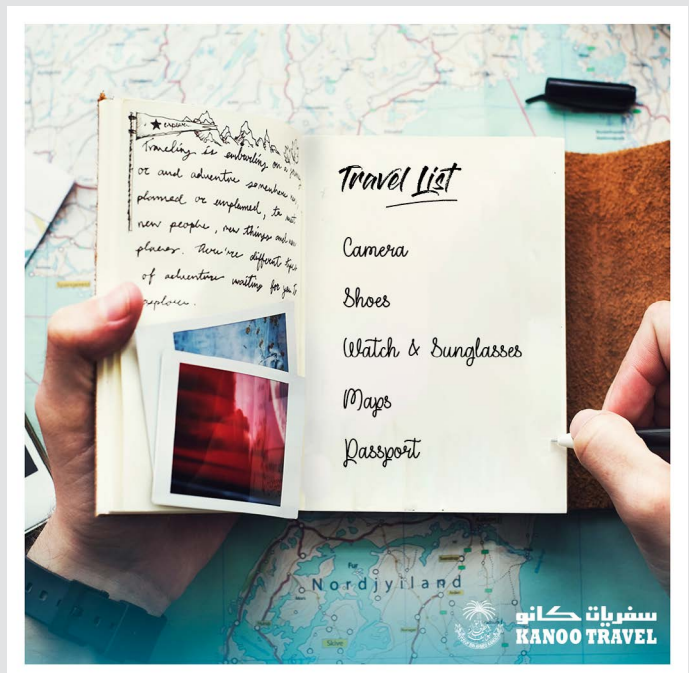 explore
Traveling is embarking on a
or and adventure somewhere
planned or unplanned, to
new people, new things and
places. There're different types
of adventure waiting for you to
explore.
Travel List
Camera
Shoes
Watch & Sunglasses
Maps
Passport
Fur
Nordjylland
سفريات كانو
KANOO TRAVEL